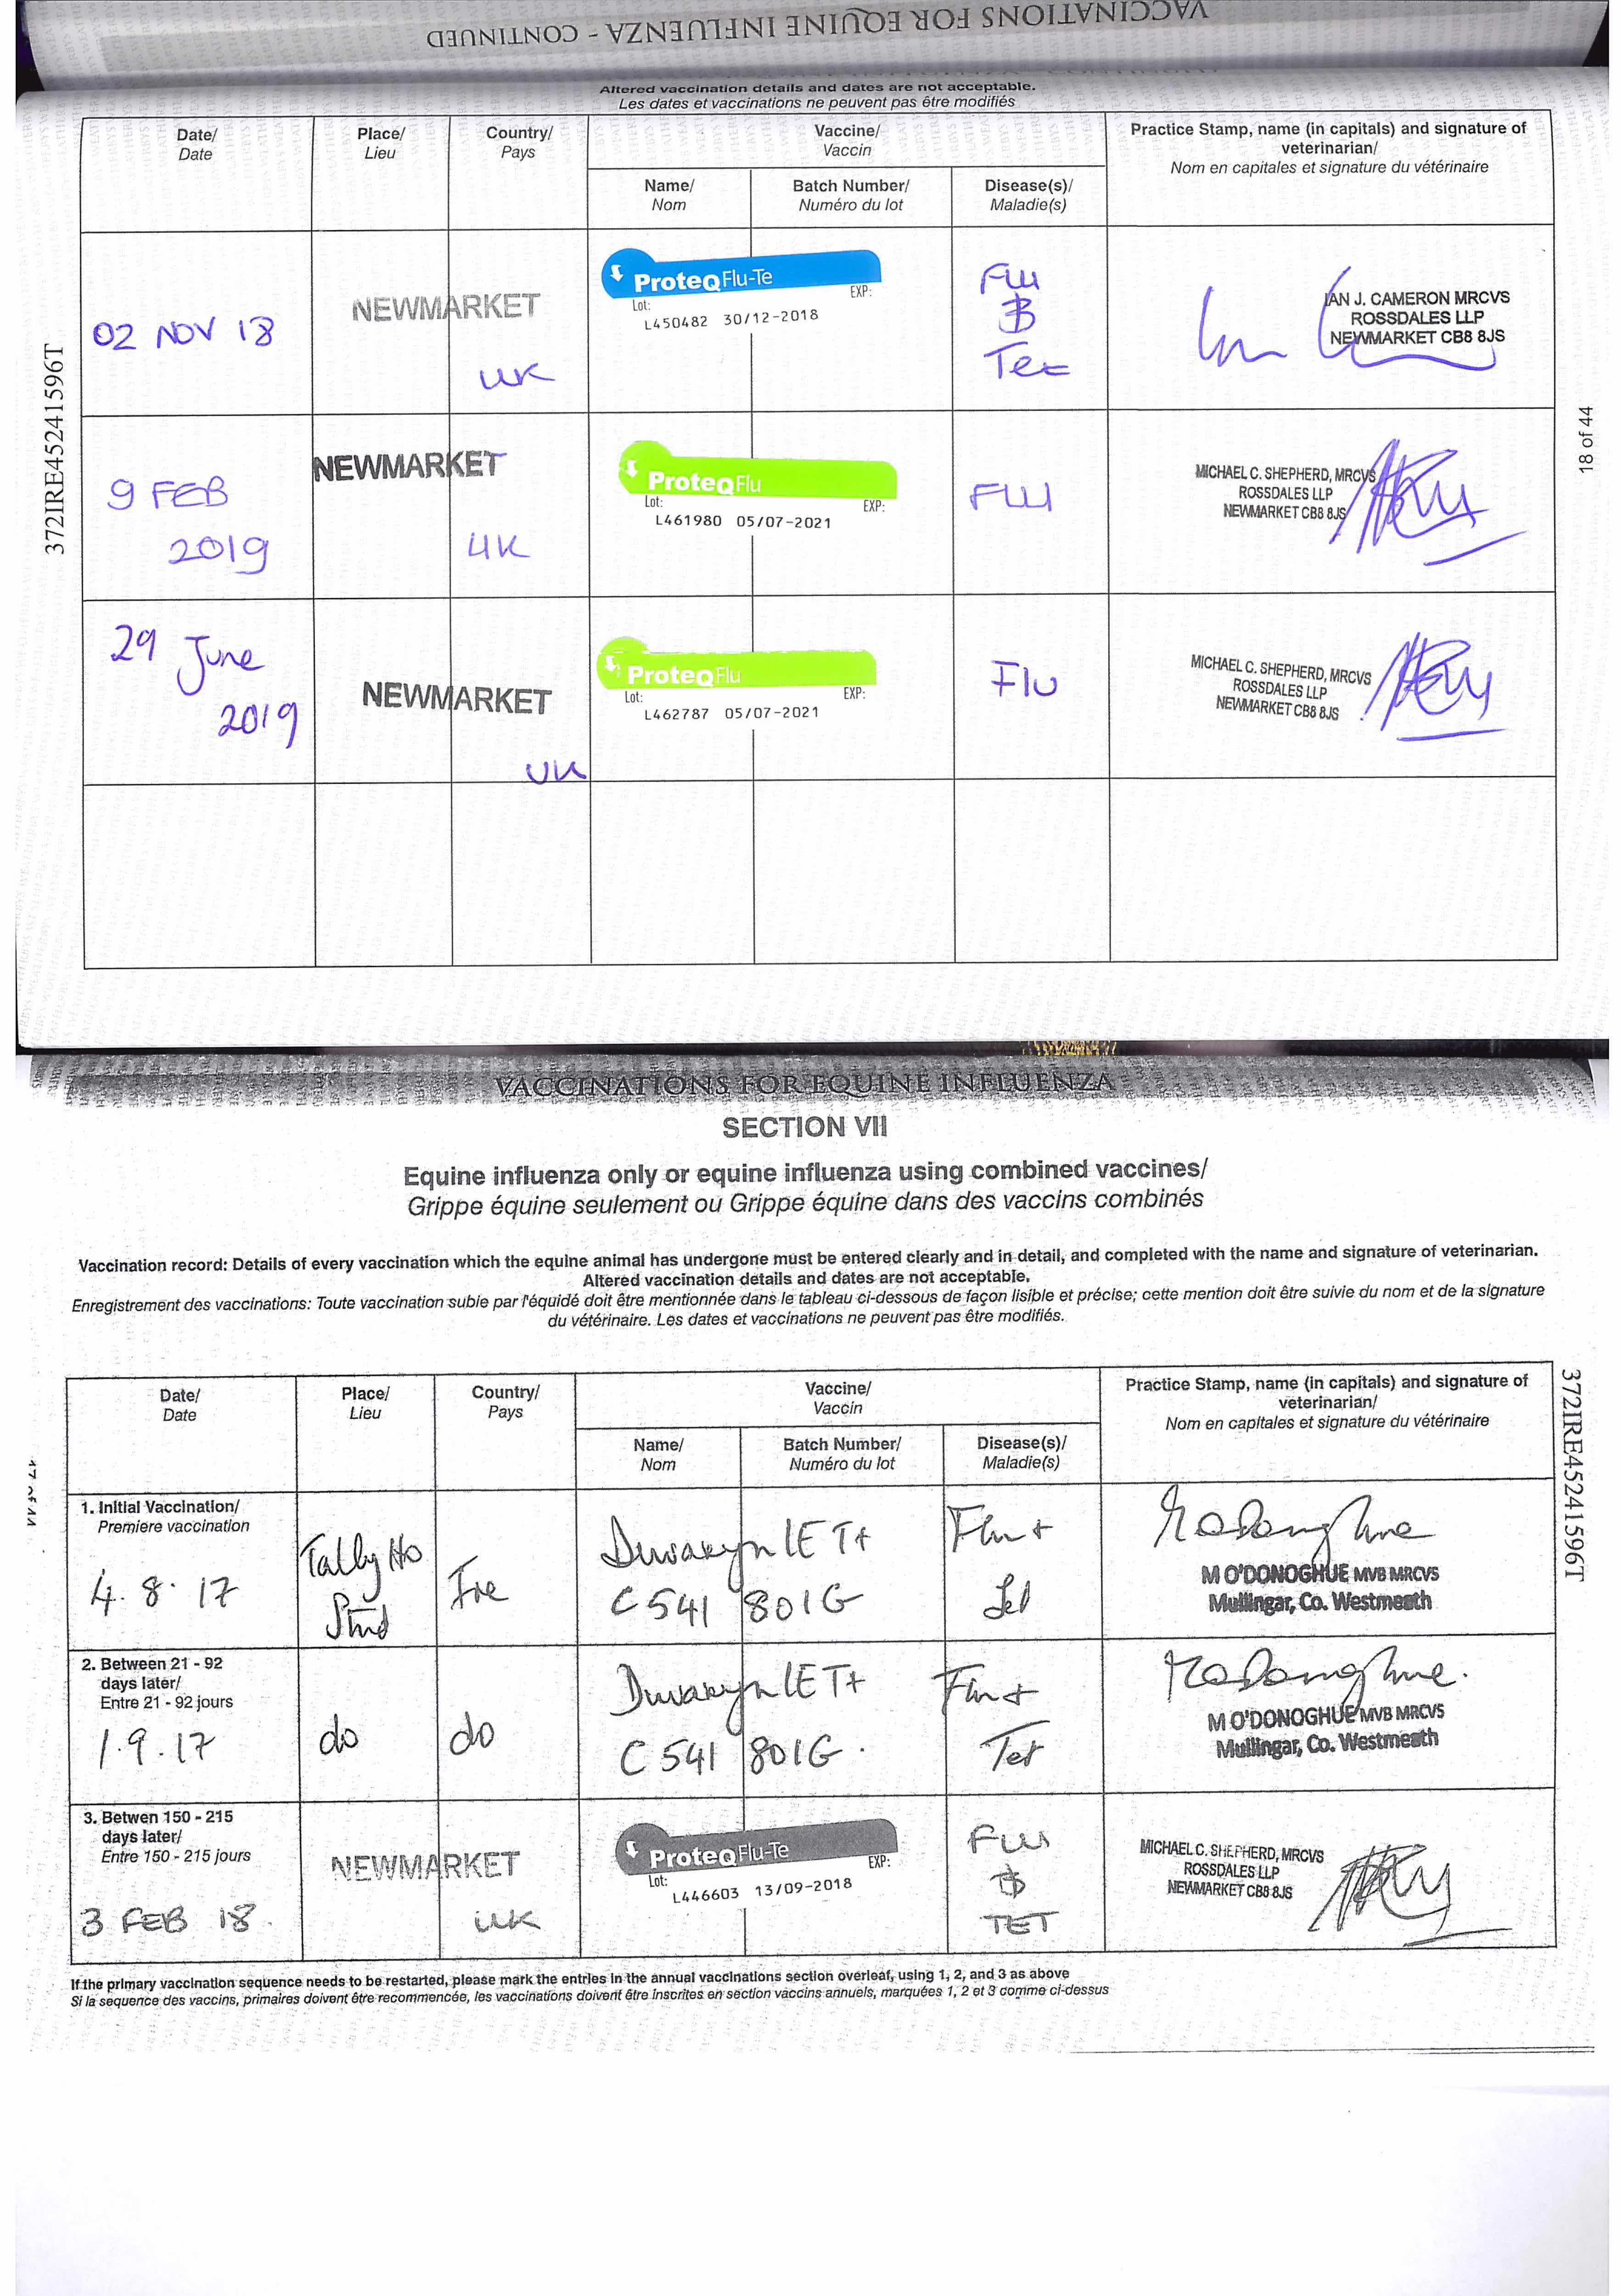 VACCINATIONS FOR EQUINE INFLUENZA - CONTINUED
Altered vaccination details and dates are not acceptable.
Les dates et vaccinations ne peuvent pas être modifiés
Date/
Date
Place/
Lieu
Country/
Pays
Vaccine/
Vaccin
Name/
Nom
Batch Number/
Numéro du lot
Disease(s)/
Maladie(s)
Practice Stamp, name (in capitals) and signature of
veterinarian/
Nom en capitales et signature du vétérinaire
02 NOV 18
NEWMARKET
UK
ProteqFlu-Te
Lot: EXP:
L450482 30/12-2018
FLU
Tet
IAN J. CAMERON MRCVS
ROSSDALES LLP
NEWMARKET CB8 8JS
9 FEB
2019
NEWMARKET
UK
ProteqFlu
Lot: EXP:
L461980 05/07-2021
FLU
MICHAEL C. SHEPHERD, MRCVS
ROSSDALES LLP
NEWMARKET CB8 8JS
29 June
2019
NEWMARKET
UK
ProteqFlu
Lot: EXP:
L462787 05/07-2021
Flu
MICHAEL C. SHEPHERD, MRCVS
ROSSDALES LLP
NEWMARKET CB8 8JS
372IRE45241596T
18 of 44
VACCINATIONS FOR EQUINE INFLUENZA
SECTION VII
Equine influenza only or equine influenza using combined vaccines/
Grippe équine seulement ou Grippe équine dans des vaccins combinés
Vaccination record: Details of every vaccination which the equine animal has undergone must be entered clearly and in detail, and completed with the name and signature of veterinarian.
Altered vaccination details and dates are not acceptable.
Enregistrement des vaccinations: Toute vaccination subie par l'équidé doit être mentionnée dans le tableau ci-dessous de façon lisible et précise; cette mention doit être suivie du nom et de la signature
du vétérinaire. Les dates et vaccinations ne peuvent pas être modifiés.
Date/
Date
Place/
Lieu
Country/
Pays
Vaccine/
Vaccin
Name/
Nom
Batch Number/
Numéro du lot
Disease(s)/
Maladie(s)
Practice Stamp, name (in capitals) and signature of
veterinarian/
Nom en capitales et signature du vétérinaire
1. Initial Vaccination/
Premiere vaccination
4. 8. 17
Tally Ho
Stud
Ire
Duvaxyn IE T+
C541 801G
Flu +
Tet
M O'DONOGHUE MVB MRCVS
Mullingar, Co. Westmeath
2. Between 21 - 92
days later/
Entre 21 - 92 jours
1.9.17
do
do
Duvaxyn IE T+
C541 801G.
Flu +
Tet
M O'DONOGHUE MVB MRCVS
Mullingar, Co. Westmeath
3. Betwen 150 - 215
days later/
Entre 150 - 215 jours
3 FEB 18.
NEWMARKET
UK
ProteqFlu-Te
Lot: EXP:
L446603 13/09-2018
FLU
TET
MICHAEL C. SHEPHERD, MRCVS
ROSSDALES LLP
NEWMARKET CB8 8JS
If the primary vaccination sequence needs to be restarted, please mark the entries in the annual vaccinations section overleaf, using 1, 2, and 3 as above
Si la sequence des vaccins, primaires doivent être recommencée, les vaccinations doivent être inscrites en section vaccins annuels, marquées 1, 2 et 3 comme ci-dessus
372IRE45241596T